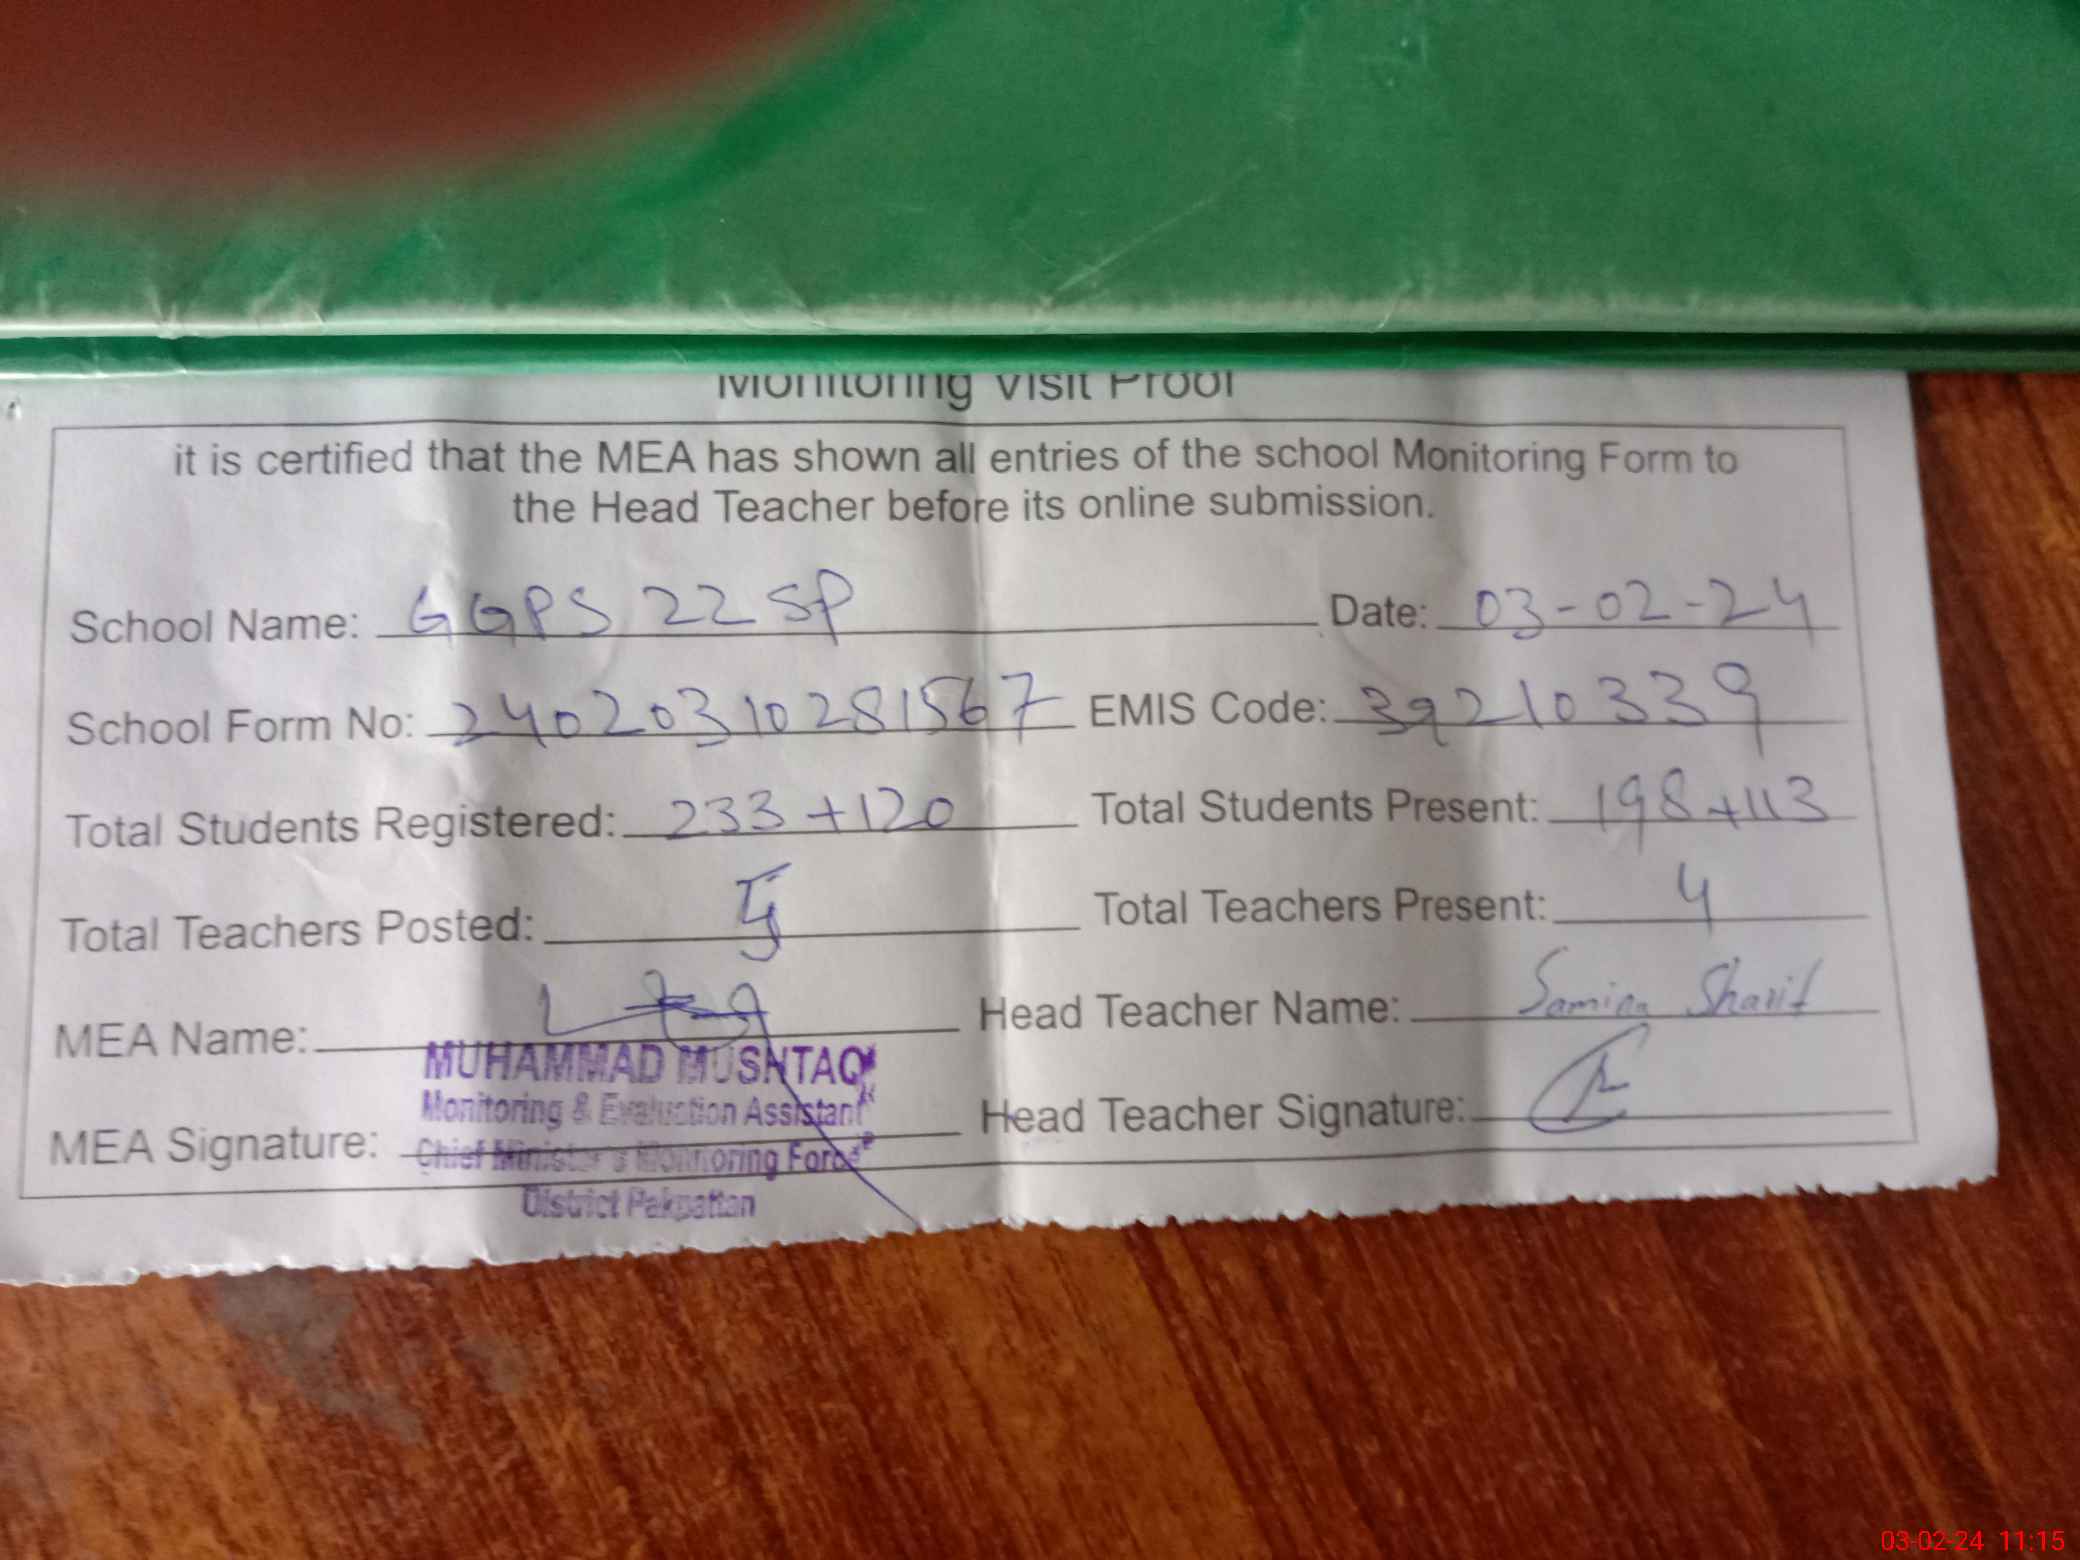 Monitoring Visit Proof
it is certified that the MEA has shown all entries of the school Monitoring Form to
the Head Teacher before its online submission.
School Name: GGPS 22 SP Date: 03-02-24
School Form No: 24020310281567 EMIS Code: 39210339
Total Students Registered: 233+120 Total Students Present: 198+113
Total Teachers Posted: Total Teachers Present: 4
MEA Name: Head Teacher Name: Samina Sharif
MUHAMMAD MUSHTAQ
Monitoring & Evaluation Assistant
MEA Signature: Head Teacher Signature:
Chief Minister's Monitoring Force
District Pakpattan
03-02-24 11:15